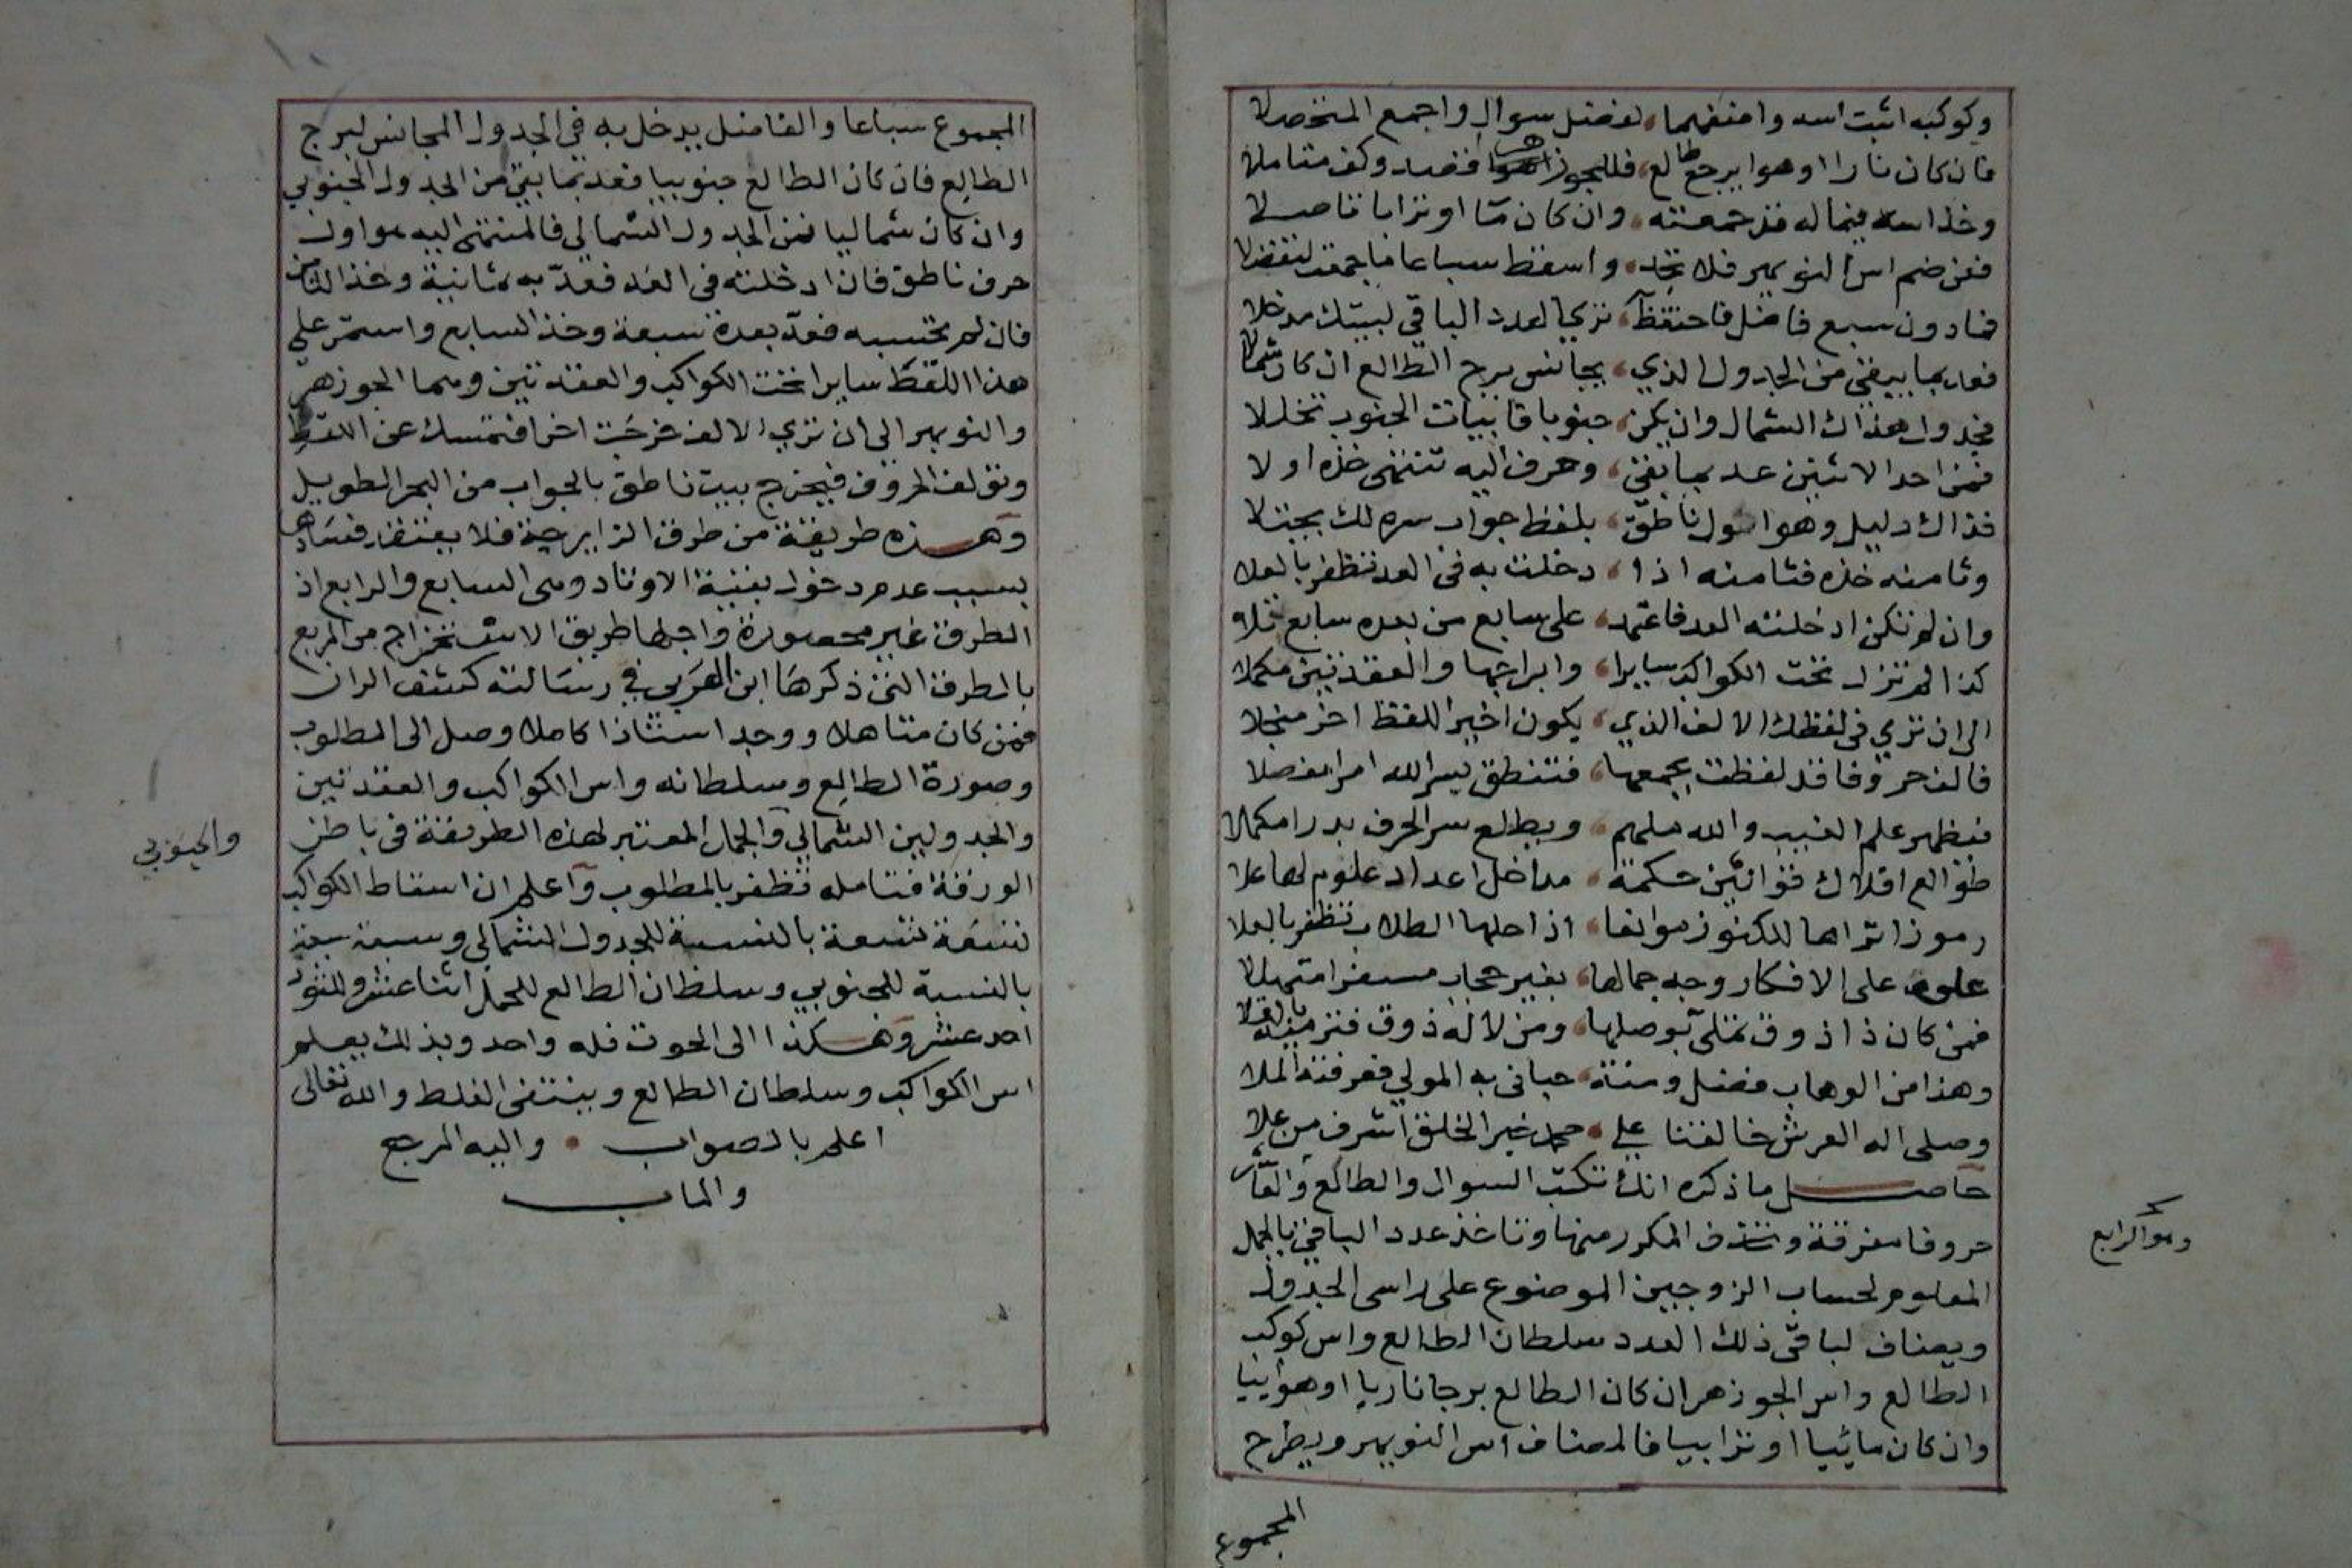 وكوكبه اثبت اسه واضفهما، لفضل سوال واجمع المتحصلا
فان كان نارا او هوا برج طالع، فللجوزهر فضد وكف متاملا
وخذ اسه فيما له قد جمعته، وان كان ما او ترابا تاصلا
فعن ضم اس النوبهر فلا تحد، واسقط سباعا ما جمعت لتفضلا
فما دون سبع فاضل فاحتفظ، تري العدد الباقي لبيتك مدخلا
فعد بما يبقى من الجدول الذي، يجانس برج الطالع ان كان شملا
فجدول هذاك الشمال وان يكن، جنوبا فابيات الجنوب تخللا
فمن احد الاثنين عد بما بقي، وحرف اليه تنتهي خذه اولا
فذاك دليل وهو اول ناطق، بلفظ جواب سره لك يجتلا
وثامنه خذه فثامنه اذا، دخلت به في العد تظفر بالعلا
وان لم تكن ادخلته العد فاعتمد، على سابع من بعده سابع تلا
كذا لم تزل تحت الكواكب سايرا، وابراجها والعقدتين مكملا
الى ان تري في لفظك الالف الذي، يكون اخير اللقط اخر منجلا
فالف حروفا قد لفظت بجمعها، فتنطق بسر الله امرا مفصلا
فتظهر علم الغيب والله ملهم، ويطلع سر الحرف بدرا مكملا
طوالع افلاك قوانين حكمة، مداخل اعداد علوم لها علا
رموز اتراها للكنوز موانعا، اذا حلها الطلاب تظفر بالعلا
علوم على الافكار وجه جمالها، بغير حجاب مسفرا متهللا
فمن كان ذا ذوق تملى بوصلها، ومن لا له ذوق فترميه بالقلا
وهذا من الوهاب فضل ومنة، حباني به المولي فعرفته الملا
وصلى اله العرش خالقنا علي، محمد خير الخلق اشرف من علا
حاصل ما ذكره انك تكتب السوال والطالع والغارب
حروفا مفرقة وتحذف المكرر منها وتاخذ عدد الباقي بالجمل
المعلوم لحساب الزوجين الموضوع على راسي الجدول
ويضاف لباقي ذلك العدد سلطان الطالع واس كوكب
الطالع واس الجوزهر ان كان الطالع برجا ناريا او هوائيا
وان كان مائيا او ترابيا فالمضاف اس النوبهر ويطرح
المجموع
وهو الرابع
المجموع سباعا والفاضل يدخل به في الجدول المجانس لبرج
الطالع فان كان الطالع جنوبيا فعد بما بقي من الجدول الجنوبي
وان كان شماليا فمن الجدول الشمالي فالمنتهى اليه هو اول
حرف ناطق فان ادخلته في العد فعد به ثمانية وخذ الثامن
فان لم تحتسبه فعد بعده سبعة وخذ السابع واستمر على
هذا اللقط سايرا تحت الكواكب والعقدتين وهما الجوزهر
والنوبهر الى ان تري الالف خرجت اخرا فتمسك عن اللقط
وتؤلف الحروف فيخرج بيت ناطق بالجواب من البحر الطويل
وهذه طريقة من طرق الزايرجة فلا يعتقد فسادها
بسبب عدم دخول بقية الاوتاد وهى السابع والرابع اذ
الطرق غير محصورة واجلها طريق الاستخراج من المربع
بالطرق التي ذكرها ابن العربي في رسالته كشف الران
فمن كان متاهلا ووجد استاذا كاملا وصل الى المطلوب
وصورة الطالع وسلطانه واس الكواكب والعقدتين
والجدولين الشمالي والجمل المعتبر لهذه الطريقة في باطن
والجنوبي
الورقة فتامله تظفر بالمطلوب واعلم ان اسقاط الكواكب
تسعة تسعة بالنسبة للجدول الشمالي وسبعة سبعة
بالنسبة للجنوبي وسلطان الطالع للحمل اثنا عشر وللثور
احد عشر وهكذا الى الحوت فله واحد وبذلك يعلم
اس الكواكب وسلطان الطالع وينتفى الغلط والله تعالى
اعلم بالصواب • واليه المرجع
والماب